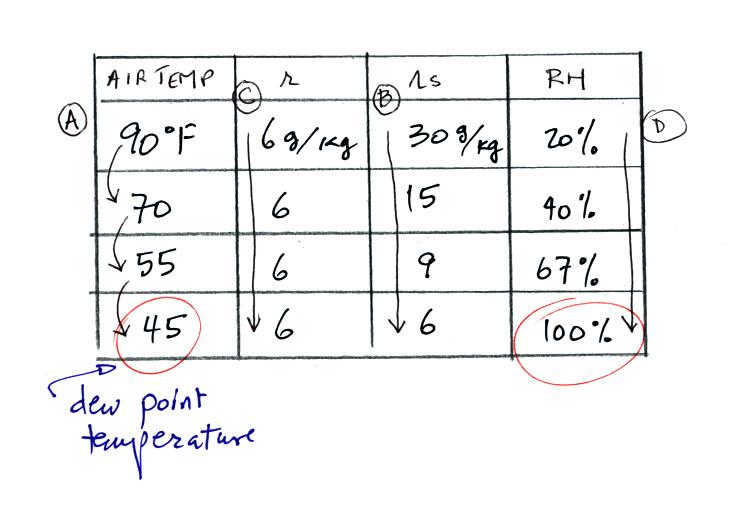 AIR TEMP r rs RH
Ⓐ Ⓒ Ⓑ Ⓓ
90°F 6 g/kg 30 g/kg 20%
70 6 15 40%
55 6 9 67%
45 6 6 100%
dew point
temperature